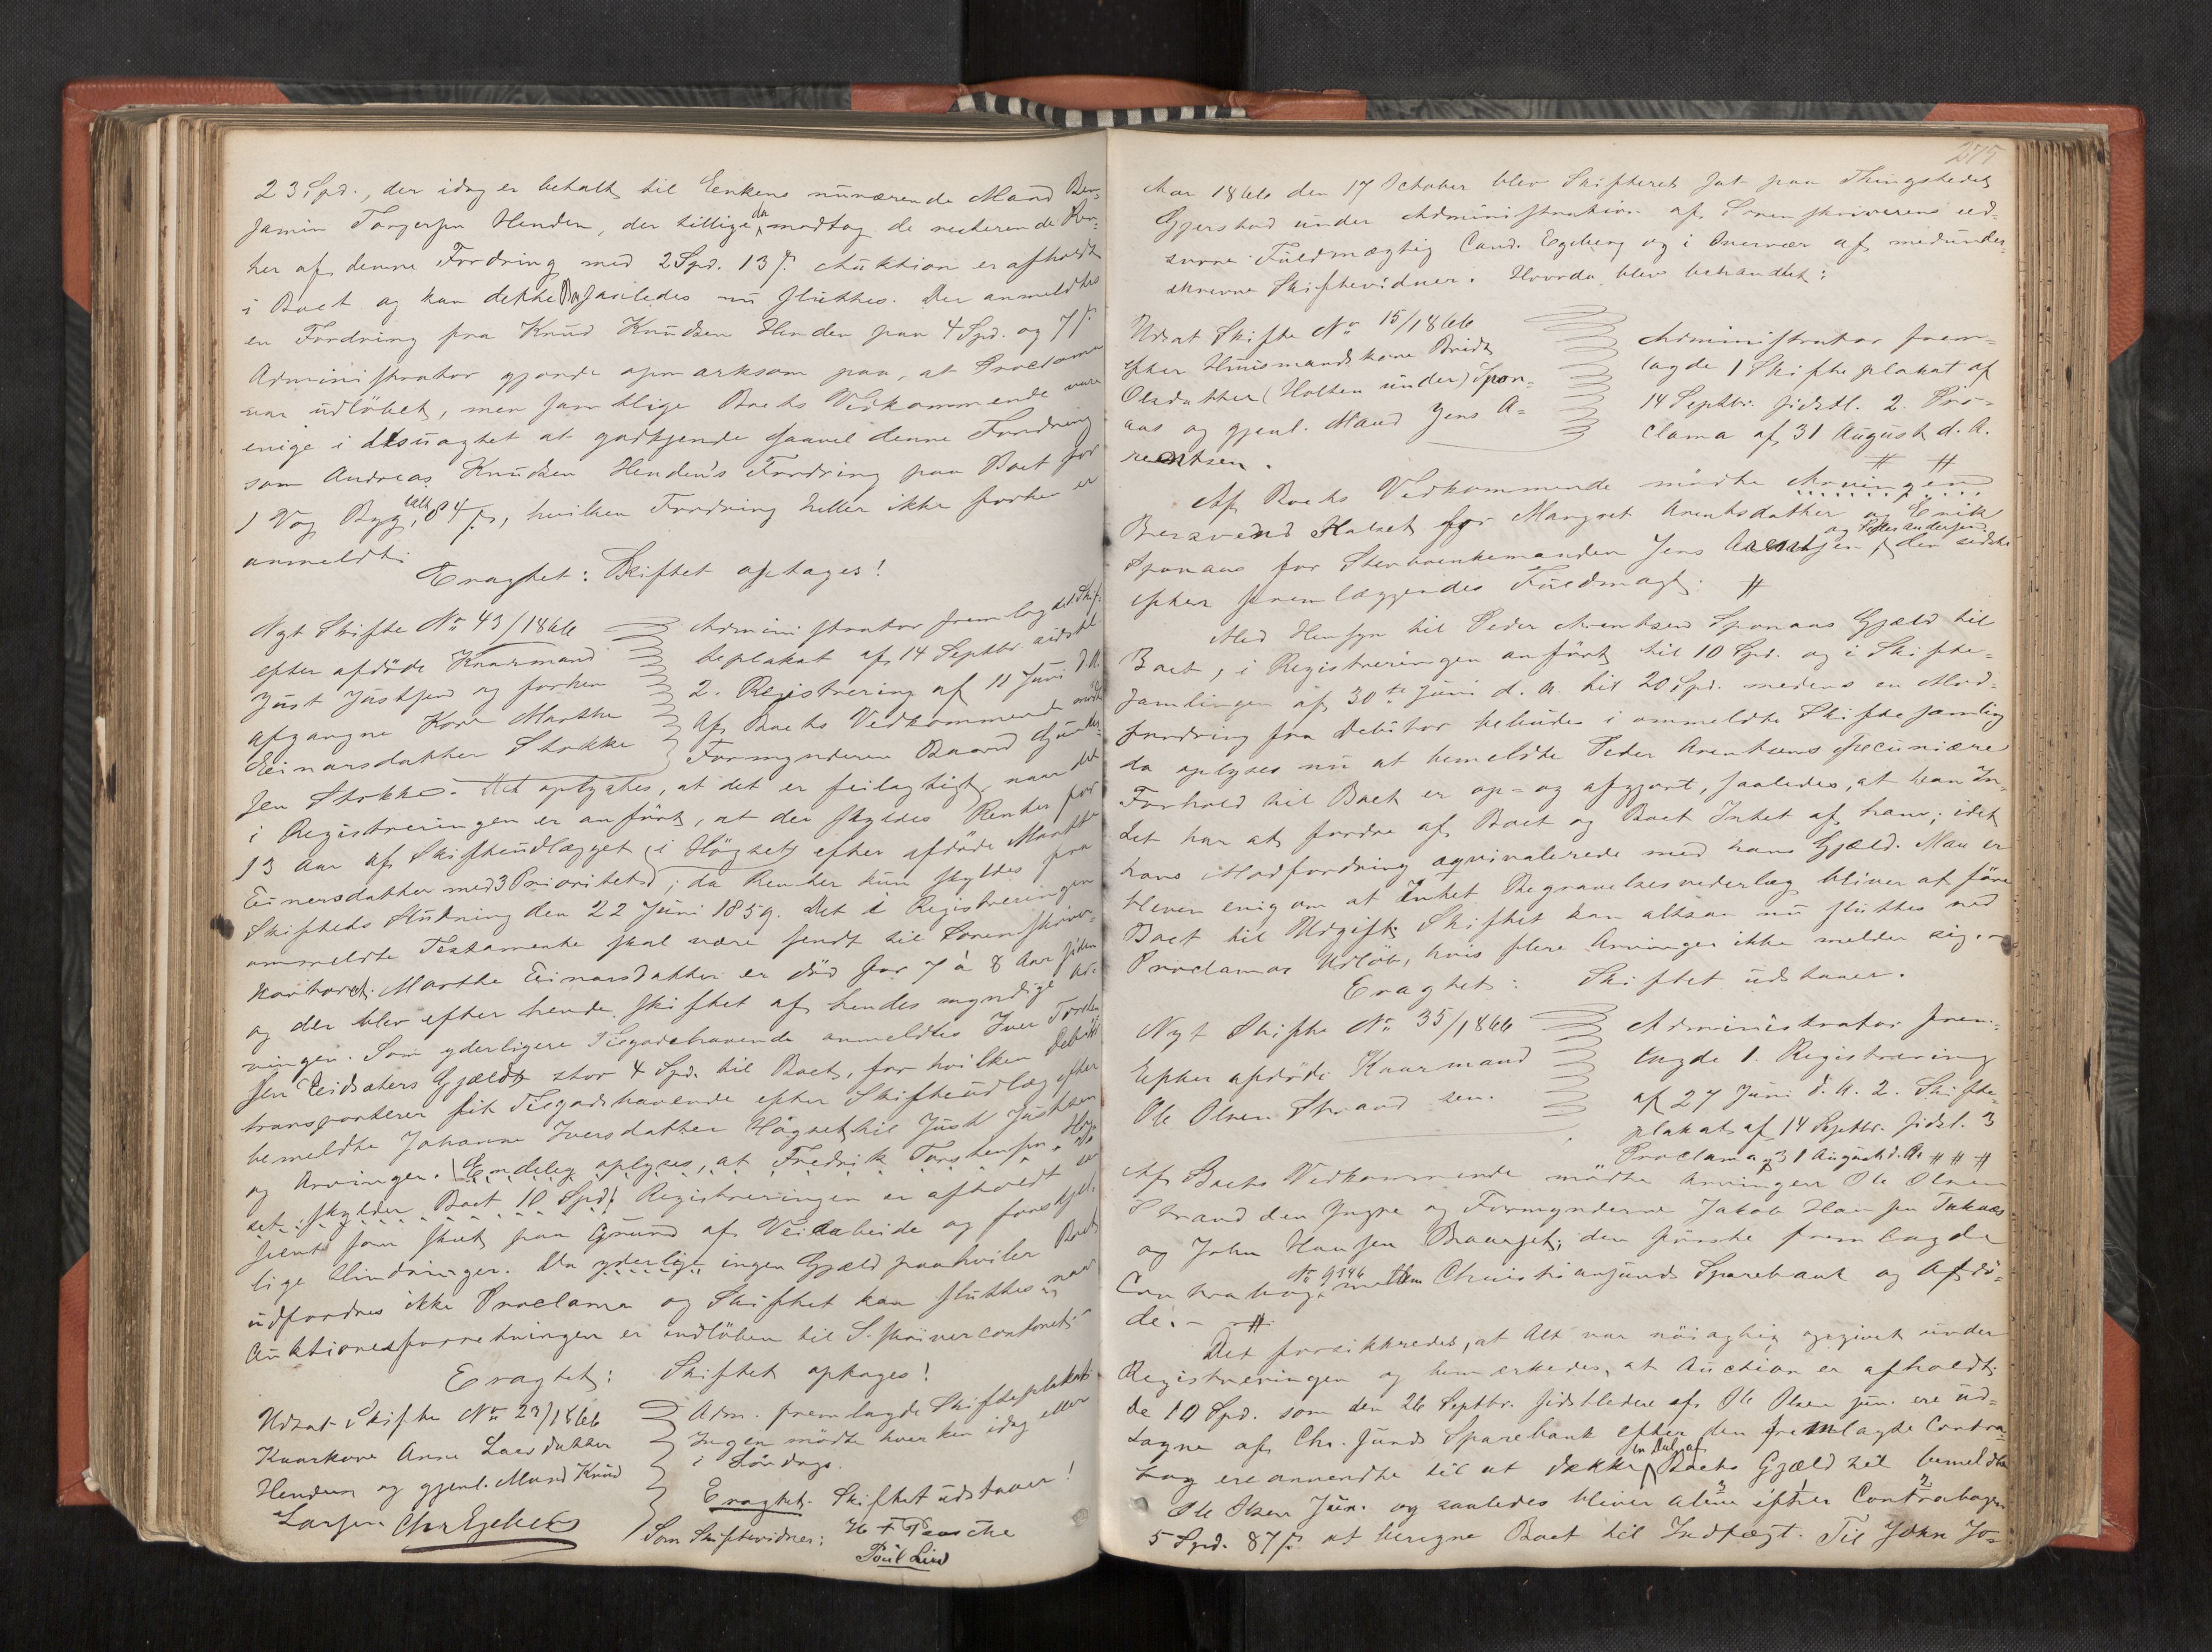 23 Spd., der idag er betalt til Enkens nuværende Mand Ben-
jamin Torgersen Henden, der tillige da modtog de resterende Ren-
ter af denne Fordring med 2 Spd. 13 ß. Auktion er afholdt
i Boet og kan dette Bo saaledes nu sluttes. Der anmeldtes
en Fordring fra Knud Knudsen Henden paa 4 Spd. og 7 ß
Administrator gjorde opmærksom paa, at Proclama
var udløbet, men samtlige Boets Vedkommende vare
enige i desuagtet at godkjende saavel denne Fordring
som Andreas Knudsen Henden's Fordring paa Boet for
1 Vog Byg, 84 ß, hvilken Fordring heller ikke forhen er
anmeldt.
Eragtet: Skiftet optages!
Nyt Skifte No 43/1866
efter afdøde Kaarmand
Just Justsen og forhen
afgangne Kone Marthe
Einarsdatter Stokke
Administrator fremlagde 1 Skif-
teplakat af 14 Septbr. sidstl.
2. Registrering af 11 Juni d.A.
Af Boets Vedkommende mødte
Formynderen Baard
sen Stokke. Det oplystes, at det er feilagtigt, naar det
i Registreringen er anført, at der skyldes Renter for
13 Aar af Skifteudlægget i Høgset efter afdøde Marthe
Einersdatter med 3 Prioritet, da Renter kun skyldes fra
Skiftets Slutning den 22 Juni 1859. Det i Registreringen
ommeldte Testamente skal være sendt til Sorenskriver-
kontoret. Marthe Einarsdatter er død for 7 à 8 Aar siden
og der blev efter hende skiftet af hendes myndige Ar-
vinger. Som yderligere Tilgodehavende anmeldtes Iver Torsten-
sen Eidsøters Gjæld stor 4 Spd. til Boet, for hvilken Debitor
transporterer sit Tilgodehavende efter Skifteudlæg efter
bemeldte Johanne Iversdatter Høgset til Just Justsen
og Arvinger. Endelig oplyses, at Fredrik Torstensen Høg-
set skylder Boet 10 Spd. Registreringen er afholdt saa
sent som skeet paa Grund af Veiarbeide og forskjel-
lige Hindringer. Da yderlige ingen Gjæld paahviler Boet
udfordres ikke Proclama og Skiftet kan sluttes naar
Auktionsforretningen er indløben til S.skrivercontoret.
Eragtet: Skiftet optages!
Udsat Skifte No 23/1866
Kaarkone Anne Larsdatter
Henden og gjenl. Mand Knud
Larsen
Adm. fremlagde Skifteplakat.
Ingen mødte hverken idag eller
i Lørdags.
Eragtet. Skiftet udstaaer!
Chr Egeberg
Som Skiftevidner:
Poul Lied
275
Aar 1866 den 17 October blev Skifteret sat paa Thingstedet
Gjerstad under Administration af Sorenskriverens ed-
svorne Fuldmægtig Cand. Egeberg og i Overvær af medunder-
skrevne Skiftevidner. Hvorda blev behandlet:
Udsat Skifte No 15/1866
efter Huusmandskone Bridt
Olsdatter (Holten under) Spon-
aas og gjenl. Mand Jens A-
rentsen.
Administrator frem-
lagde 1 Skifteplakat af
14 Septbr. sidstl. 2. Pro-
clama af 31 August d. A.
Af Boets Vedkommende mødte Arvingen
Bersvend Halset for Margret Arentsdatter og Erik
Sponaas for Sterboenkemanden Jens Arentsen og Peder Andersen, den sidste
efter fremlæggendes Fuldmagt.
Med Hensyn til Peder Arentsen Sponaas Gjæld til
Boet, i Registreringen anført til 10 Spd. og i Skifte-
samlingen af 30te Juni d. A. til 20 Spd. medens en Mod-
fordring fra Debitor bebudes i ommeldte Skiftesamling
da oplyses nu at bemeldte Peder Arentsens pecuniære
Forhold til Boet er op- og afgjort, saaledes, at han In-
det har at fordre af Boet og Boet Intet af ham; idet
hans Modfordring æqvivalerede med hans Gjæld. Man er
bleven enig om at Intet Begravelsesvederlag bliver at føre
Boet til Udgift. Skiftet kan altsaa nu sluttes ved
Proclamas Udløb, hvis flere Arvinger ikke melder sig.
Eragtet: Skiftet udstaaer.
Nyt Skifte No 35/1866
Efter afdøde Kaarmand
Ole Olsen Strand sen.
Administrator frem-
lagde 1. Registrering
af 27 Juni d. A. 2. Skifte-
plakat af 14 Septbr. sidstl. 3
Proclama af 31 August d. A.
Af Boets Vedkommende mødte Arvingen Ole Olsen
Strand den Yngre og Formynderne Jakob Hansen
og John Hansen den første fremlagde
Contrabog No 9346 mellem Christiansunds Sparebank og Afdø-
de.
Det forsikkredes, at Alt var nøiagtig opgivet under
Registreringen og bemærkedes, at Auction er afholdt.
De 10 Spd. som den 26 Septbr. sidstleden af Ole Olsen jun. ere ud-
tagne af Chr.sunds Sparebank efter den fremlagte Contra-
bog ere anvendte til at dække en Del af Boets Gjæld til bemeldte
Ole Olsen Jun. og saaledes bliver alene efter Contrabogen
5 Spd. 87 ß at beregne Boet til Indtægt. Til John Jo-